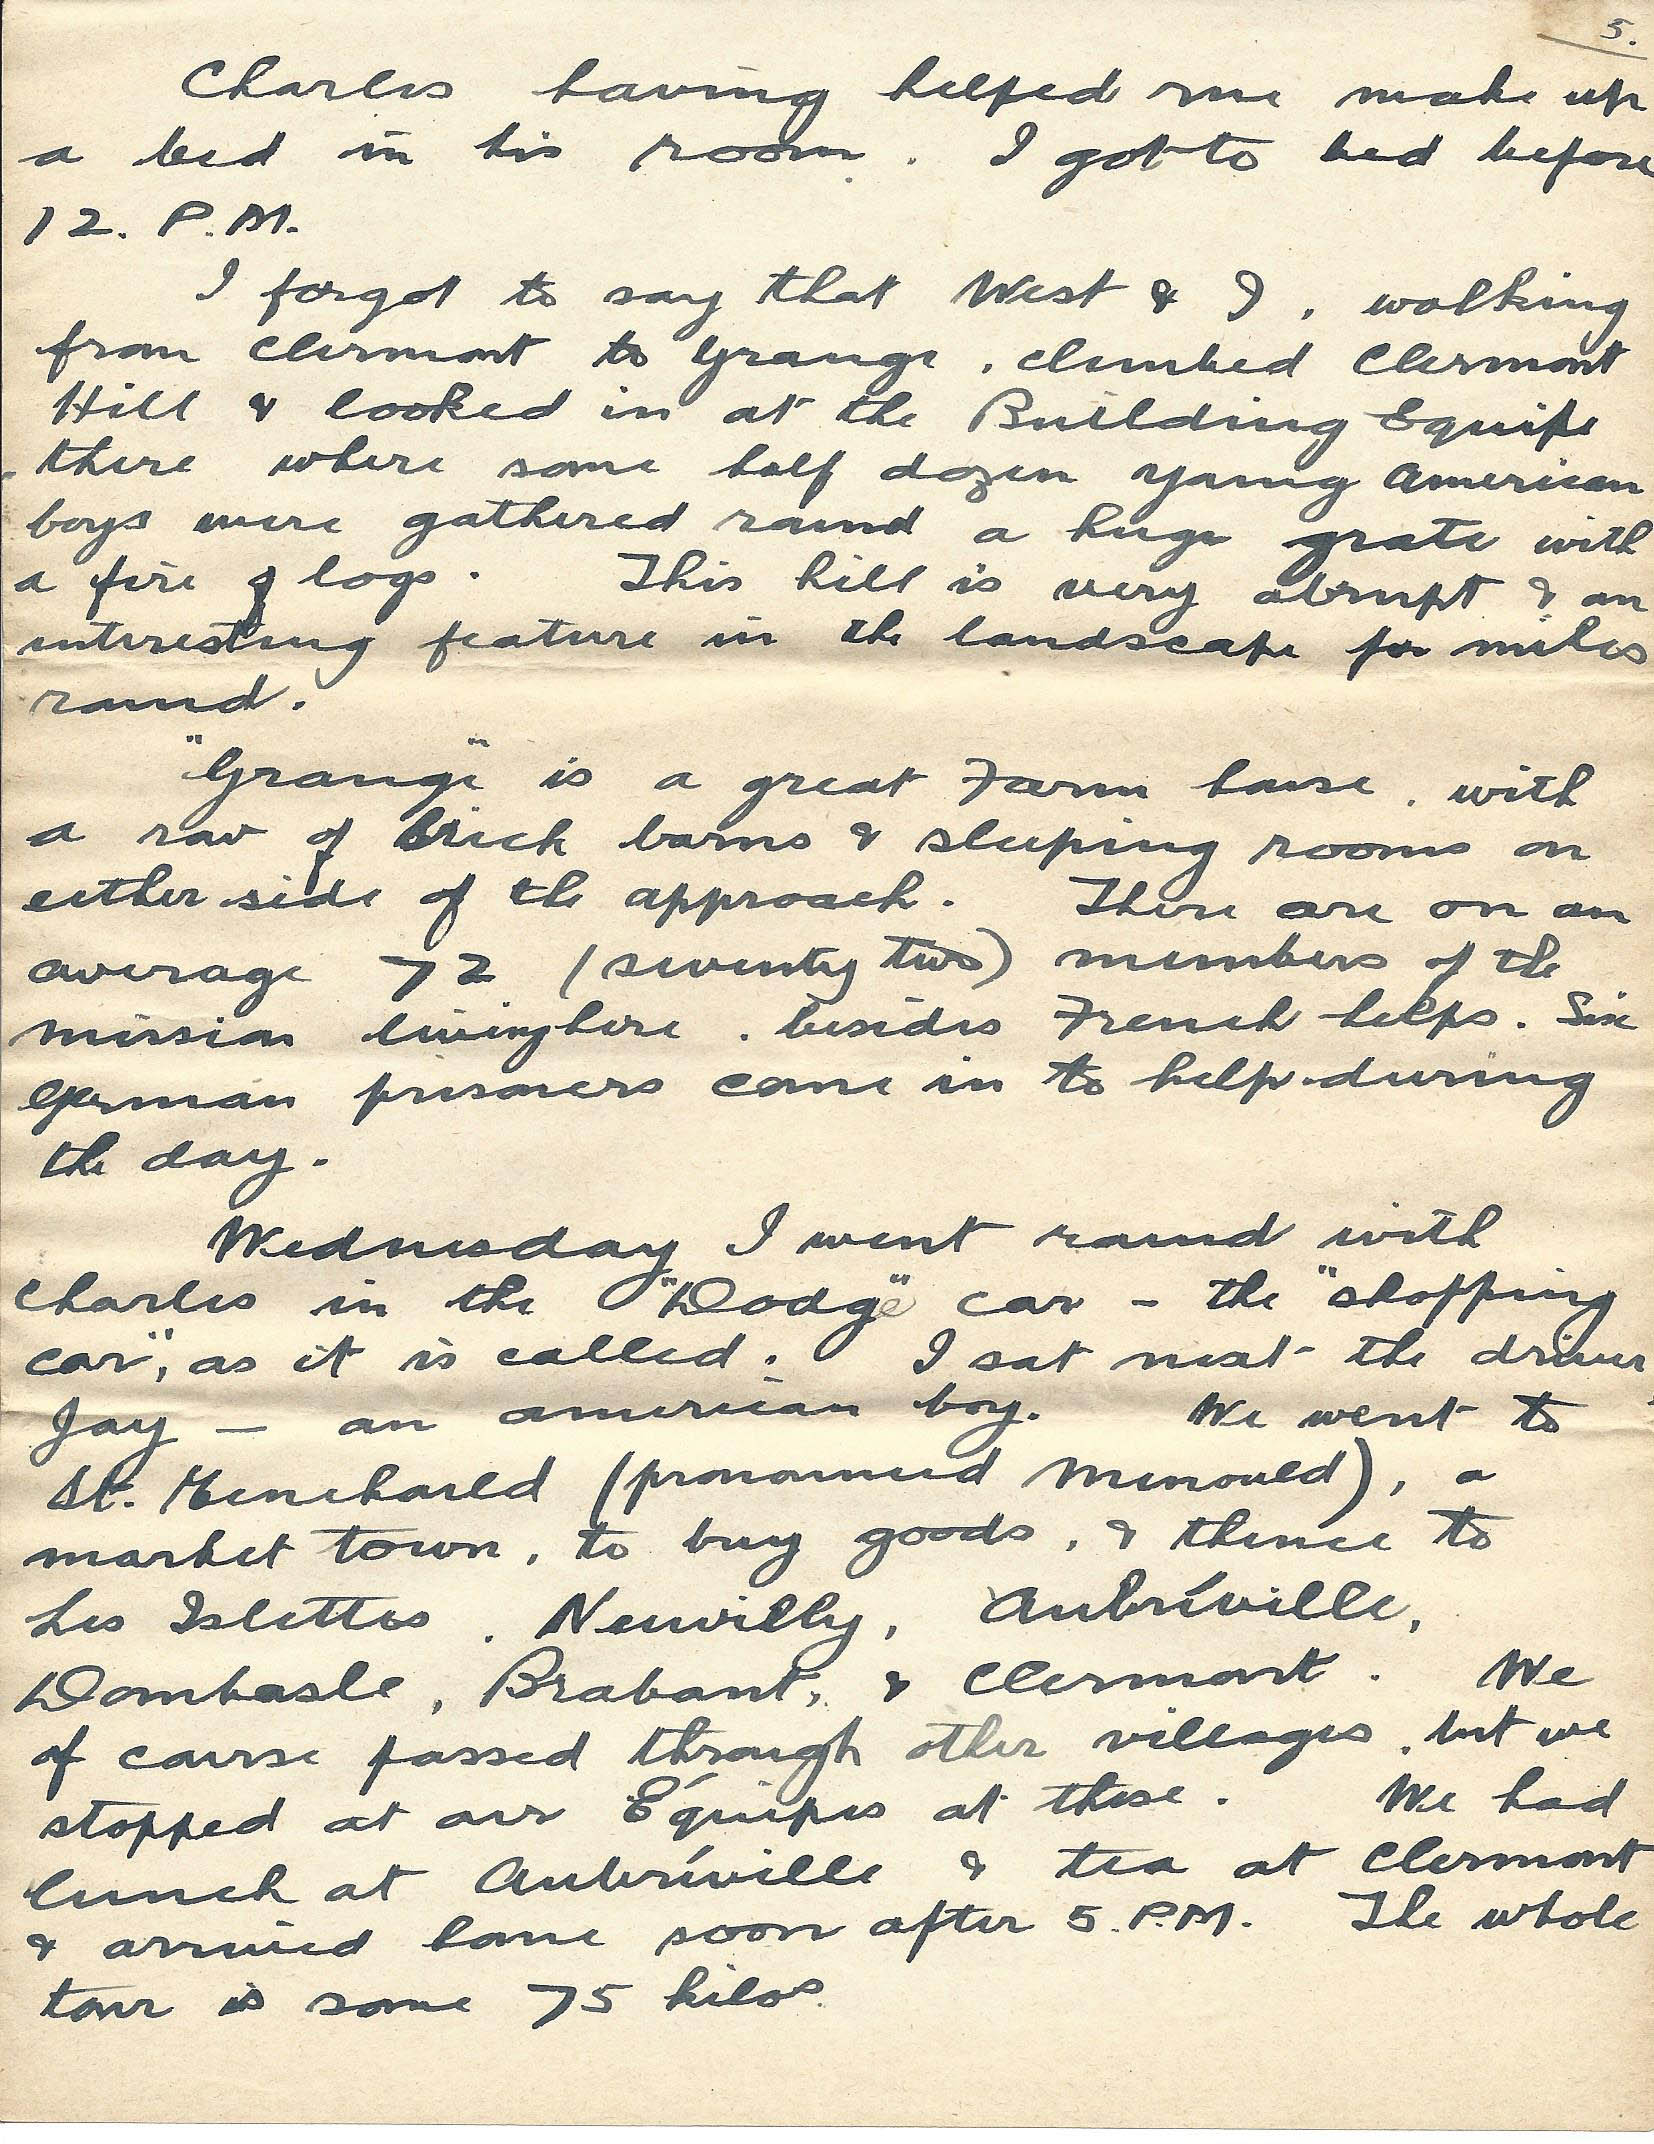 5.
Charles having helped me make up
a bed in his room. I got to bed before
12. P.M.
I forgot to say that West & I, walking
from Clermont to Grange, climbed Clermont
Hill & looked in at the Building Equipe
there where some half dozen young American
boys were gathered round a huge grate with
a fire of logs. This hill is very abrupt & an
interesting feature in the landscape for miles
round.
"Grange" is a great Farm house, with
a row of brick barns & sleeping rooms on
either side of the approach. There are on an
average 72 (seventy two) members of the
mission living here, besides French helps. Six
German prisoners come in to help during
the day.
Wednesday I went round with
Charles in the "Dodge" car - the "shopping
car", as it is called. I sat next the driver
Jay - an American boy. We went to
St. Menehauld (pronounced Menould), a
market town, to buy goods, & thence to
Les Islettes, Neuvilly, Aubréville,
Dombasle, Brabant, & Clermont. We
of course passed through other villages, but we
stopped at our Équipes at these. We had
lunch at Aubréville & tea at Clermont
& arrived home soon after 5. P.M. The whole
tour is some 75 kilos.